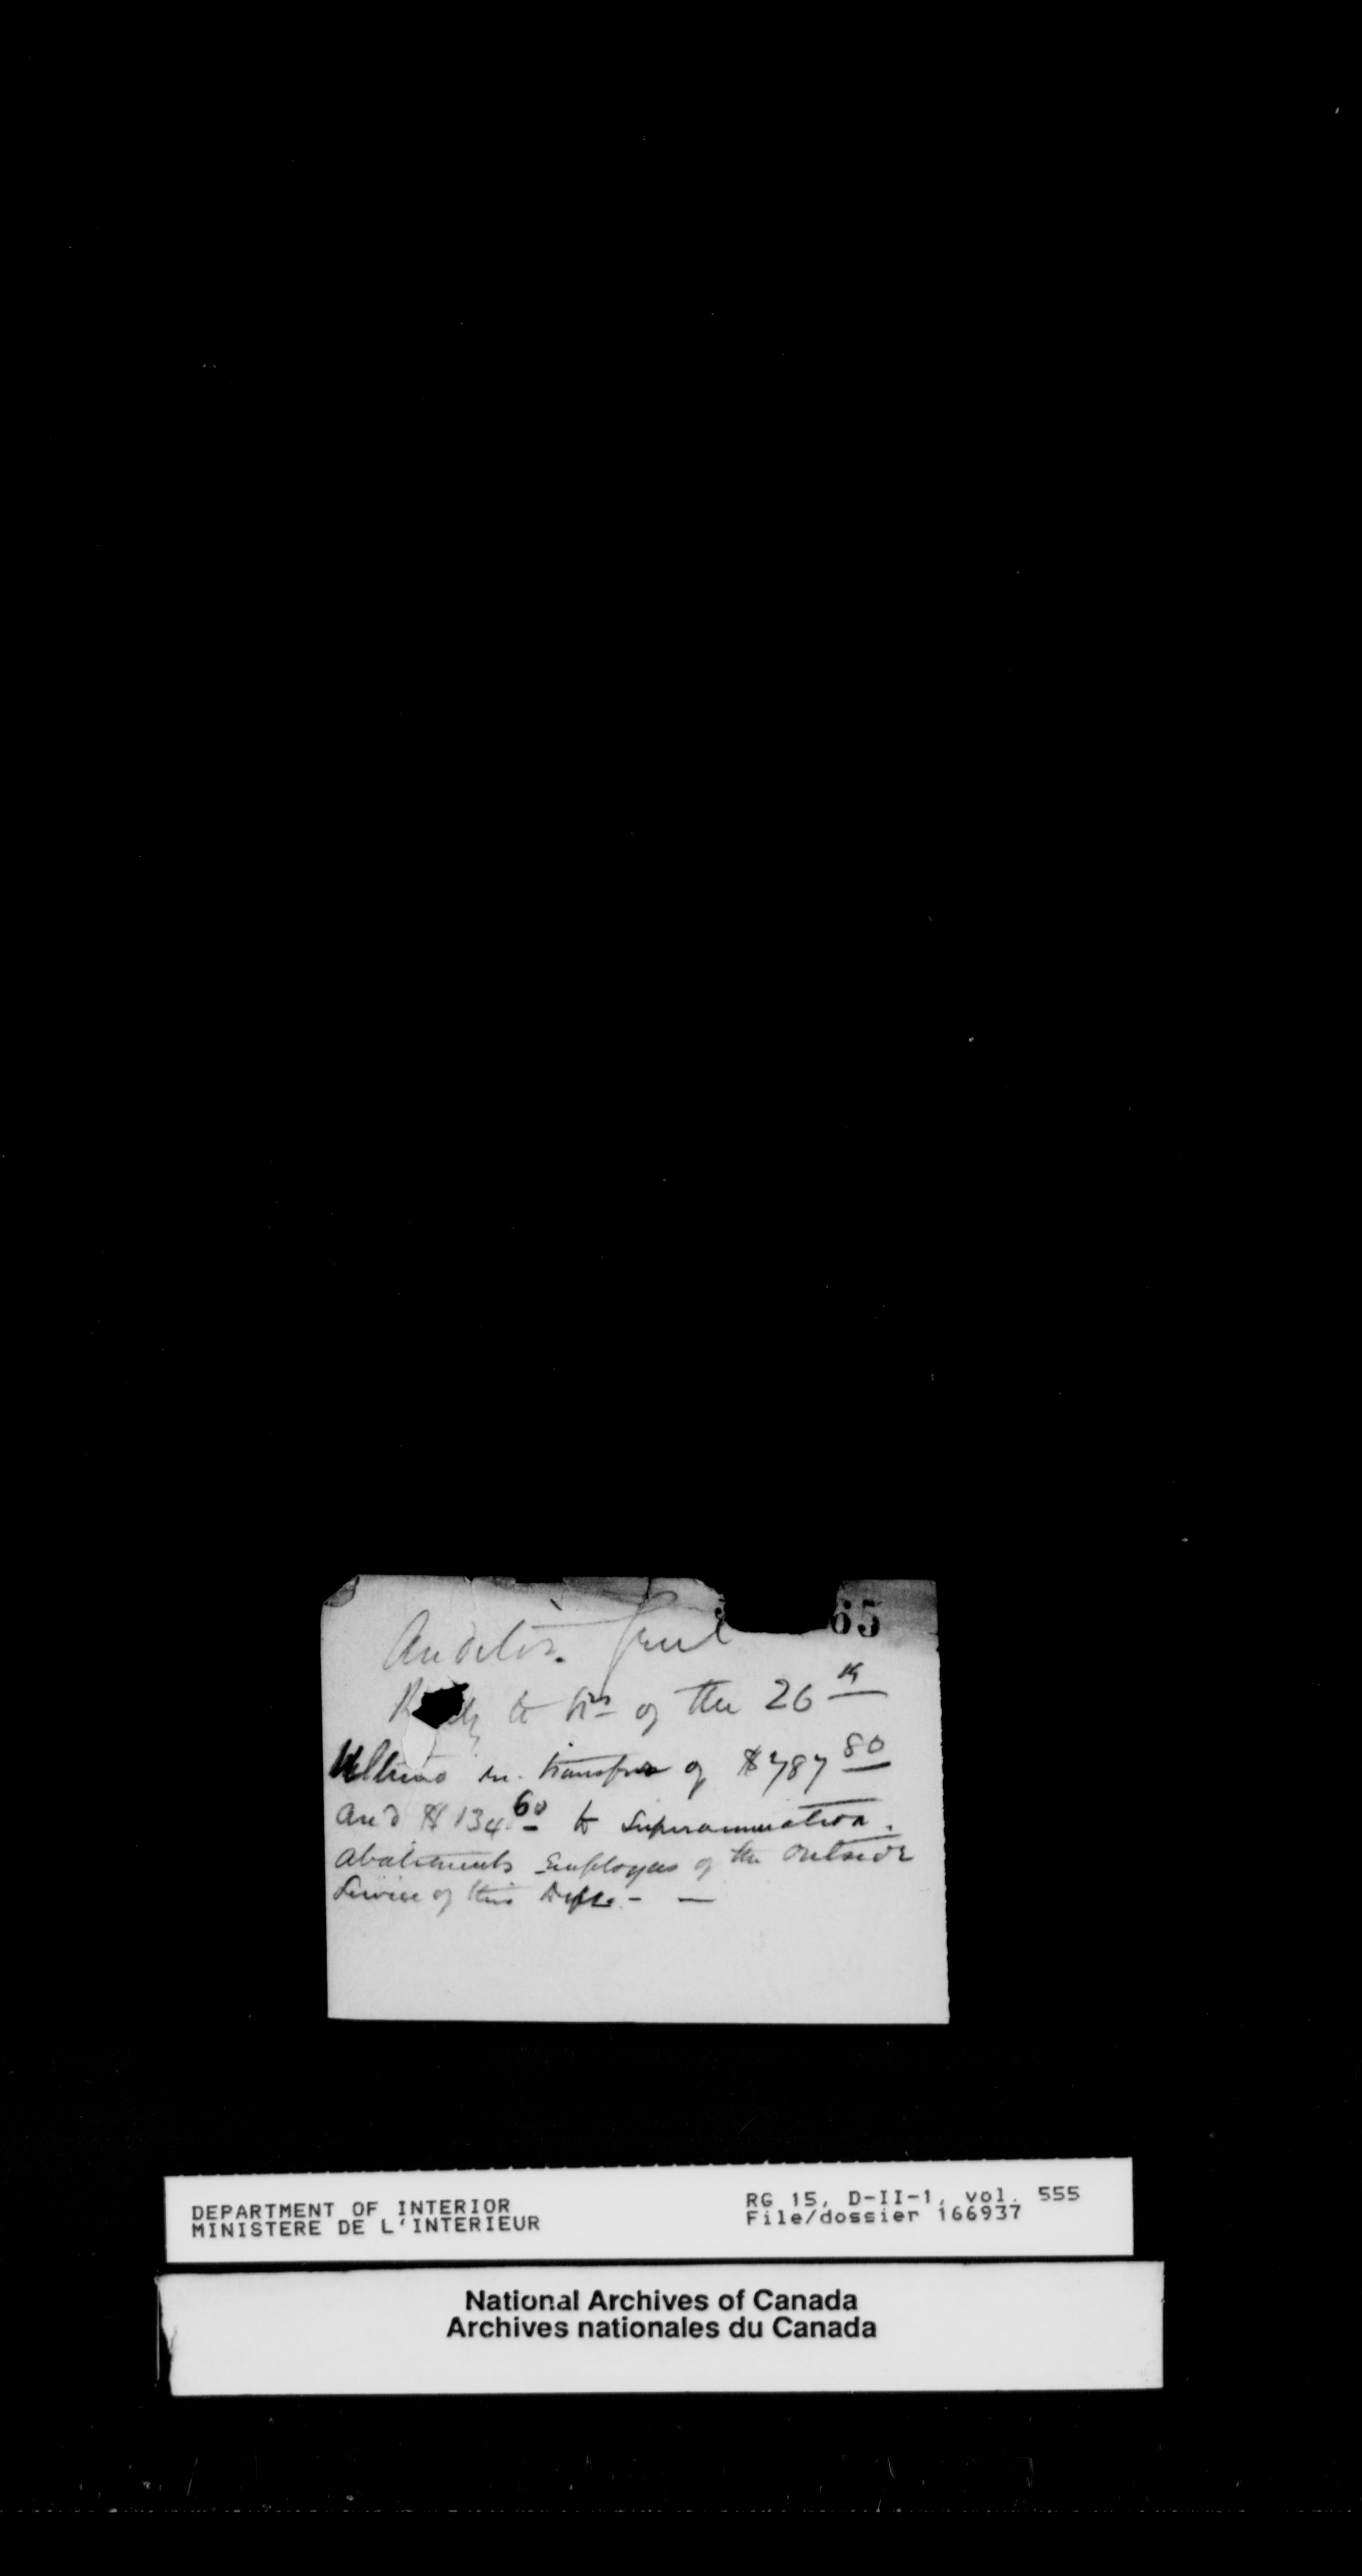 65
Auditor. Genl
to his of the 26th
Ultimo in transfer of $787 80
and $134.60 to Superannuation.
Abatements Employees of the Outside
Service of this Dept. - —
DEPARTMENT OF INTERIOR
MINISTERE DE L'INTERIEUR
RG 15, D-II-1, vol. 555
File/dossier 166937
National Archives of Canada
Archives nationales du Canada